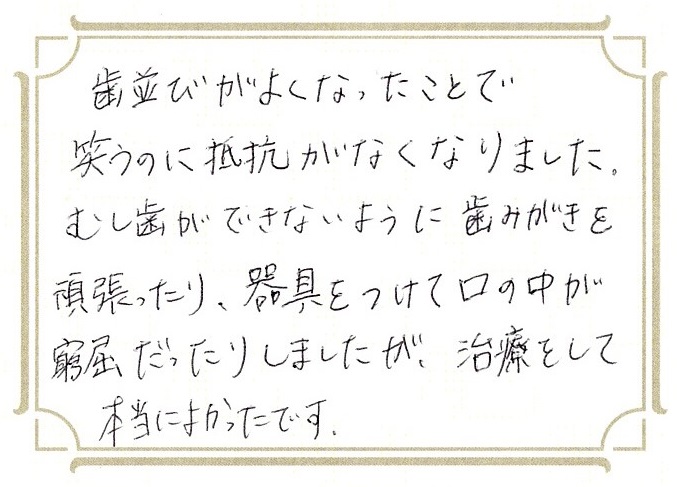 歯並びがよくなったことで
笑うのに抵抗がなくなりました。
むし歯ができないように歯みがきを
頑張ったり、器具をつけて口の中が
窮屈だったりしましたが、治療をして
本当によかったです。